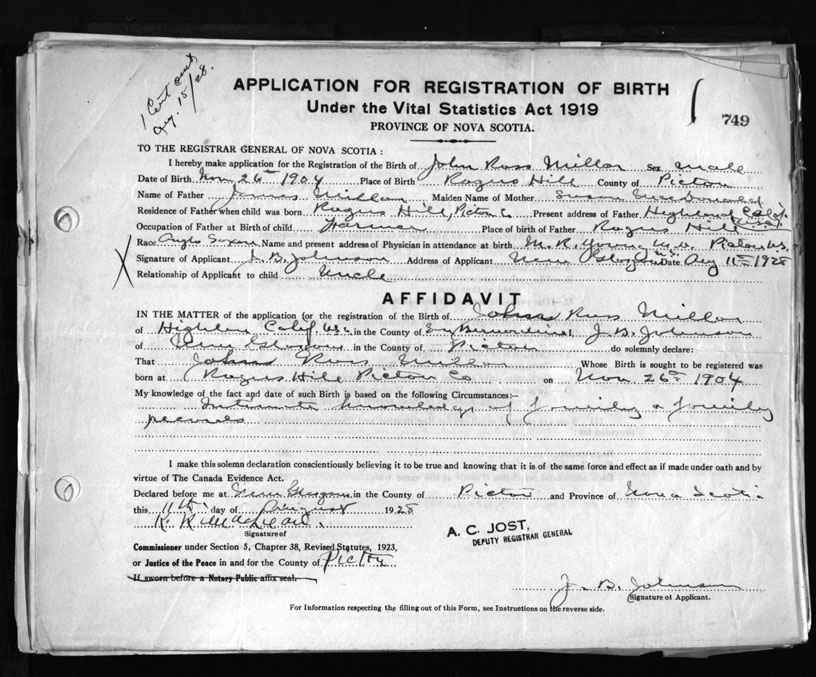 1 Cert sent
Aug. 15/28.
APPLICATION FOR REGISTRATION OF BIRTH
Under the Vital Statistics Act 1919
749
PROVINCE OF NOVA SCOTIA.
TO THE REGISTRAR GENERAL OF NOVA SCOTIA :
I hereby make application for the Registration of the Birth of John Ross Millar Sex Male
Date of Birth Nov 26th 1904 Place of Birth Rogers Hill County of Pictou
Name of Father James Millar Maiden Name of Mother Susan
Residence of Father when child was born Rogers Hill, Pictou Co Present address of Father Highland, Calif.
Occupation of Father at Birth of child Farmer Place of birth of Father Rogers Hill
Race Anglo Saxon Name and present address of Physician in attendance at birth M. R. Young M.D. Pictou N.S.
Signature of Applicant J. B. Johnson Address of Applicant New Glasgow N.S. Date Aug 11th 1928
Relationship of Applicant to child Uncle
X
AFFIDAVIT
IN THE MATTER of the application for the registration of the Birth of John Ross Millar
of Highland Calif. in the County of San Bernardino I, J. B. Johnson
of New Glasgow in the County of Pictou do solemnly declare:
That John Ross Millar Whose Birth is sought to be registered was
born at Rogers Hill Pictou Co on Nov 26th 1904
My knowledge of the fact and date of such Birth is based on the following Circumstances:—
Intimate knowledge of family & family
records
I make this solemn declaration conscientiously believing it to be true and knowing that it is of the same force and effect as if made under oath and by
virtue of The Canada Evidence Act.
Declared before me at New Glasgow in the County of Pictou and Province of Nova Scotia
this 11th day of August 1928
K. MacLean.
Signature of
A. C. JOST,
DEPUTY REGISTRAR GENERAL
Commissioner under Section 5, Chapter 38, Revised Statutes, 1923,
or Justice of the Peace in and for the County of Pictou
If sworn before a Notary Public affix seal.
J. B. Johnson
Signature of Applicant.
For Information respecting the filling out of this Form, see Instructions on the reverse side.